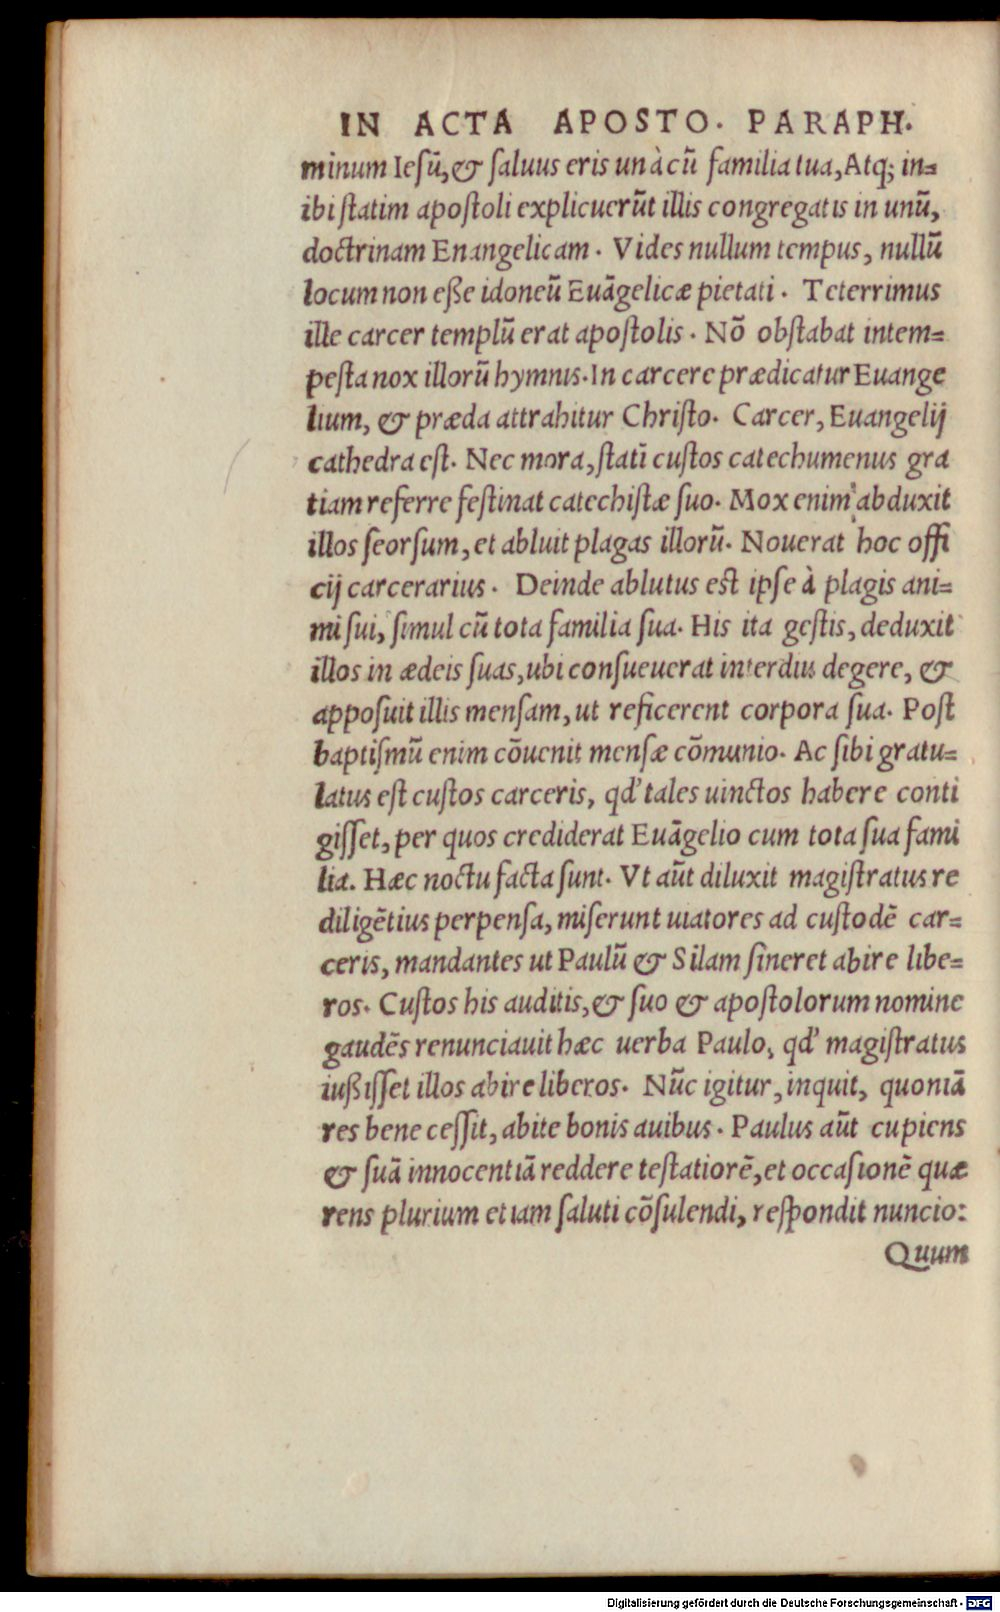 IN ACTA APOSTO. PARAPH.
minum Iesũ, & ſaluus eris unà cũ familia tua, Atq; in=
ibi ſtatim apoſtoli explicuerũt illis congregatis in unũ,
doctrinam Enangelicam. Vides nullum tempus, nullũ
locum non eße idoneũ Euãgelicæ pietati. Teterrimus
ille carcer templũ erat apoſtolis. Nõ obſtabat intem=
peſta nox illorũ hymnis. In carcere prædicatur Euange
lium, & præda attrahitur Chriſto. Carcer, Euangelij
cathedra eſt. Nec mora, ſtatĩ cuſtos catechumenus gra
tiam referre feſtinat catechiſtæ ſuo. Mox enim abduxit
illos ſeorſum, et abluit plagas illorũ. Nouerat hoc offi
cij carcerarius. Deinde ablutus eſt ipſe à plagis ani=
mi ſui, ſimul cũ tota familia ſua. His ita geſtis, deduxit
illos in ædeis ſuas, ubi conſueuerat interdiu degere, &
appoſuit illis menſam, ut reficerent corpora ſua. Poſt
baptiſmũ enim cõuenit menſæ cõmunio. Ac ſibi gratu=
latus eſt cuſtos carceris, qđ tales uinctos habere conti
giſſet, per quos crediderat Euãgelio cum tota ſua fami
lia. Hæc noctu facta ſunt. Vt aũt diluxit magiſtratus re
diligẽtius perpenſa, miſerunt uiatores ad cuſtodẽ car=
ceris, mandantes ut Paulũ & Silam ſineret abire libe=
ros. Cuſtos his auditis, & ſuo & apoſtolorum nomine
gaudẽs renunciauit hæc uerba Paulo, qđ magiſtratus
iußiſſet illos abire liberos. Nũc igitur, inquit, quoniã
res bene ceſſit, abite bonis auibus. Paulus aũt cupiens
& ſuã innocentiã reddere teſtatiorẽ, et occaſionẽ quæ
rens plurium etiam ſaluti cõſulendi, reſpondit nuncio:
Quum
Digitalisierung gefördert durch die Deutsche Forschungsgemeinschaft - DFG